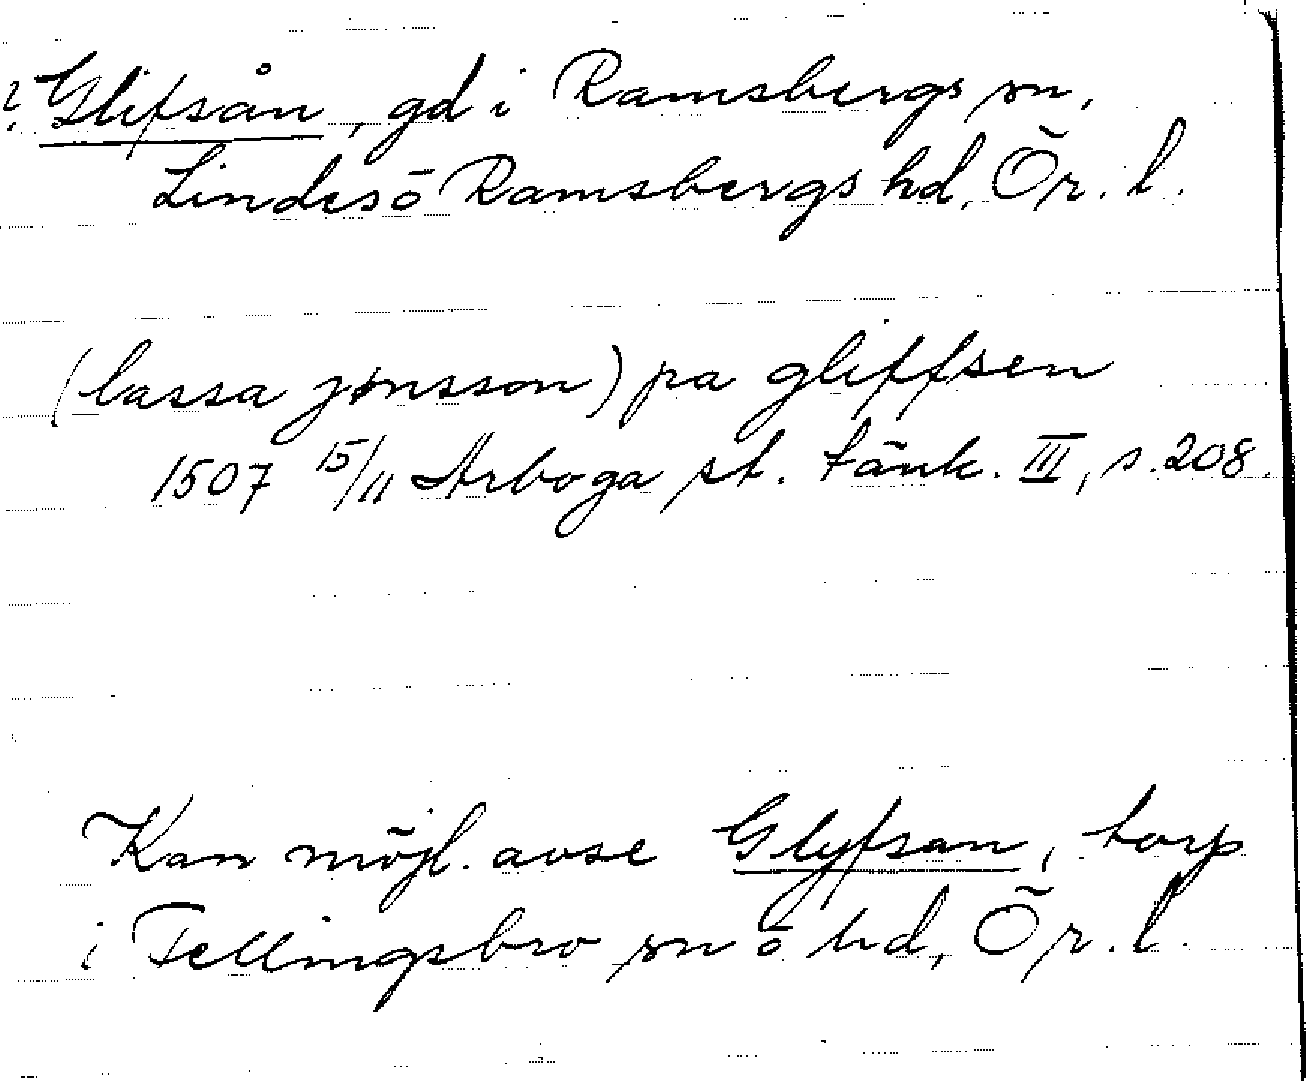 ? Glifsån, gd i Ramsbergs sn,
Lindes ō Ramsbergs hd, Ör. l.
(lassa jønsson) pa gliffsen
1507 15/11 Arboga st. tänk. III, s. 208.
Kan möjl. avse Glyfsan, torp
i Fellingsbro sn ō hd, Ör. l.